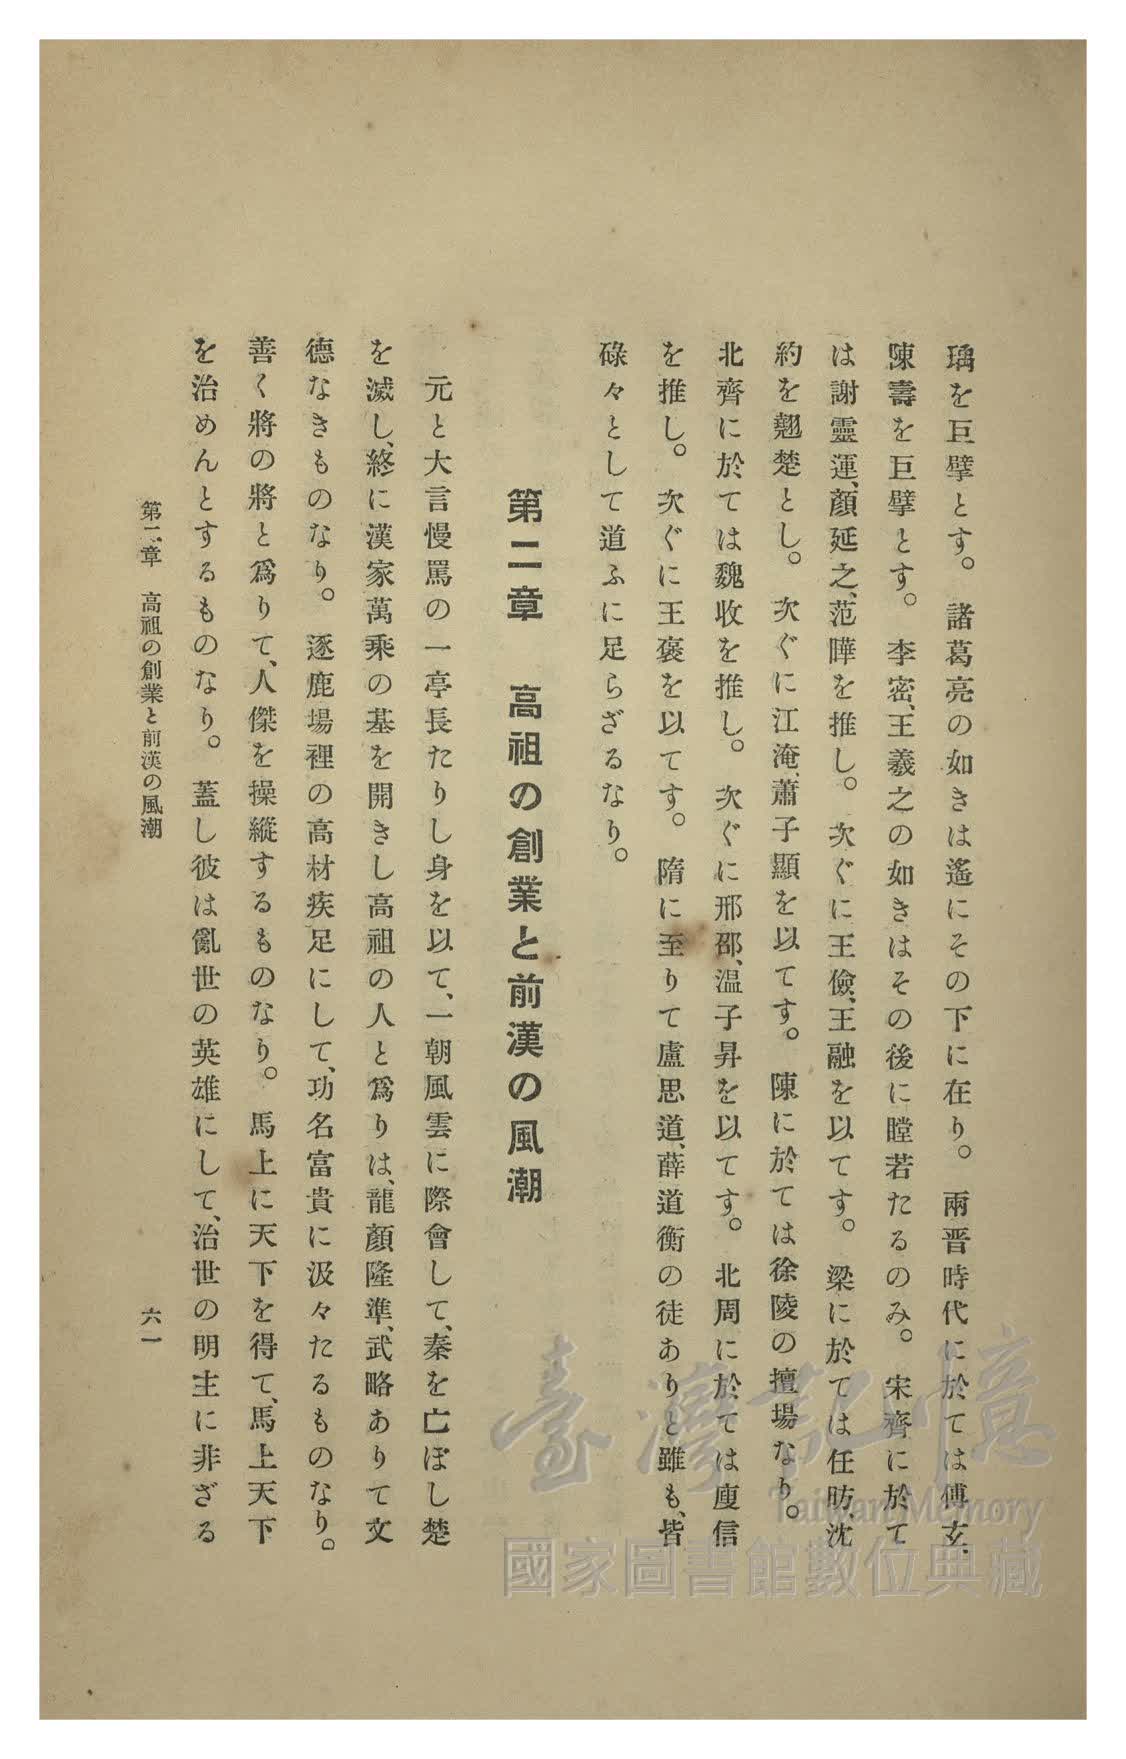 瑀を巨擘とす。諸葛亮の如きは遙にその下に在り。兩晋時代に於ては傅玄、
陳壽を巨擘とす。李密、王羲之の如きはその後に瞠若たるのみ。宋齊に於て
は謝靈運、顏延之、范曄を推し。次ぐに王儉、王融を以てす。梁に於ては任昉、沈
約を翹楚とし。次ぐに江淹、蕭子顯を以てす。陳に於ては徐陵の擅場なり。
北齊に於ては魏收を推し。次ぐに邢邵、温子昇を以てす。北周に於ては庾信
を推し。次ぐに王褒を以てす。隋に至りて盧思道、薛道衡の徒ありと雖も、皆
碌々として道ふに足らざるなり。
第二章　高祖の創業と前漢の風潮
元と大言慢罵の一亭長たりし身を以て、一朝風雲に際會して、秦を亡ぼし楚
を滅し、終に漢家萬乘の基を開きし高祖の人と爲りは、龍顏隆準、武略ありて文
德なきものなり。逐鹿場裡の高材疾足にして、功名富貴に汲々たるものなり。
善く將の將と爲りて、人傑を操縱するものなり。馬上に天下を得て、馬上天下
を治めんとするものなり。蓋し彼は亂世の英雄にして、治世の明主に非ざる
第二章　高祖の創業と前漢の風潮
六一
臺灣記憶
Taiwan Memory
國家圖書館數位典藏